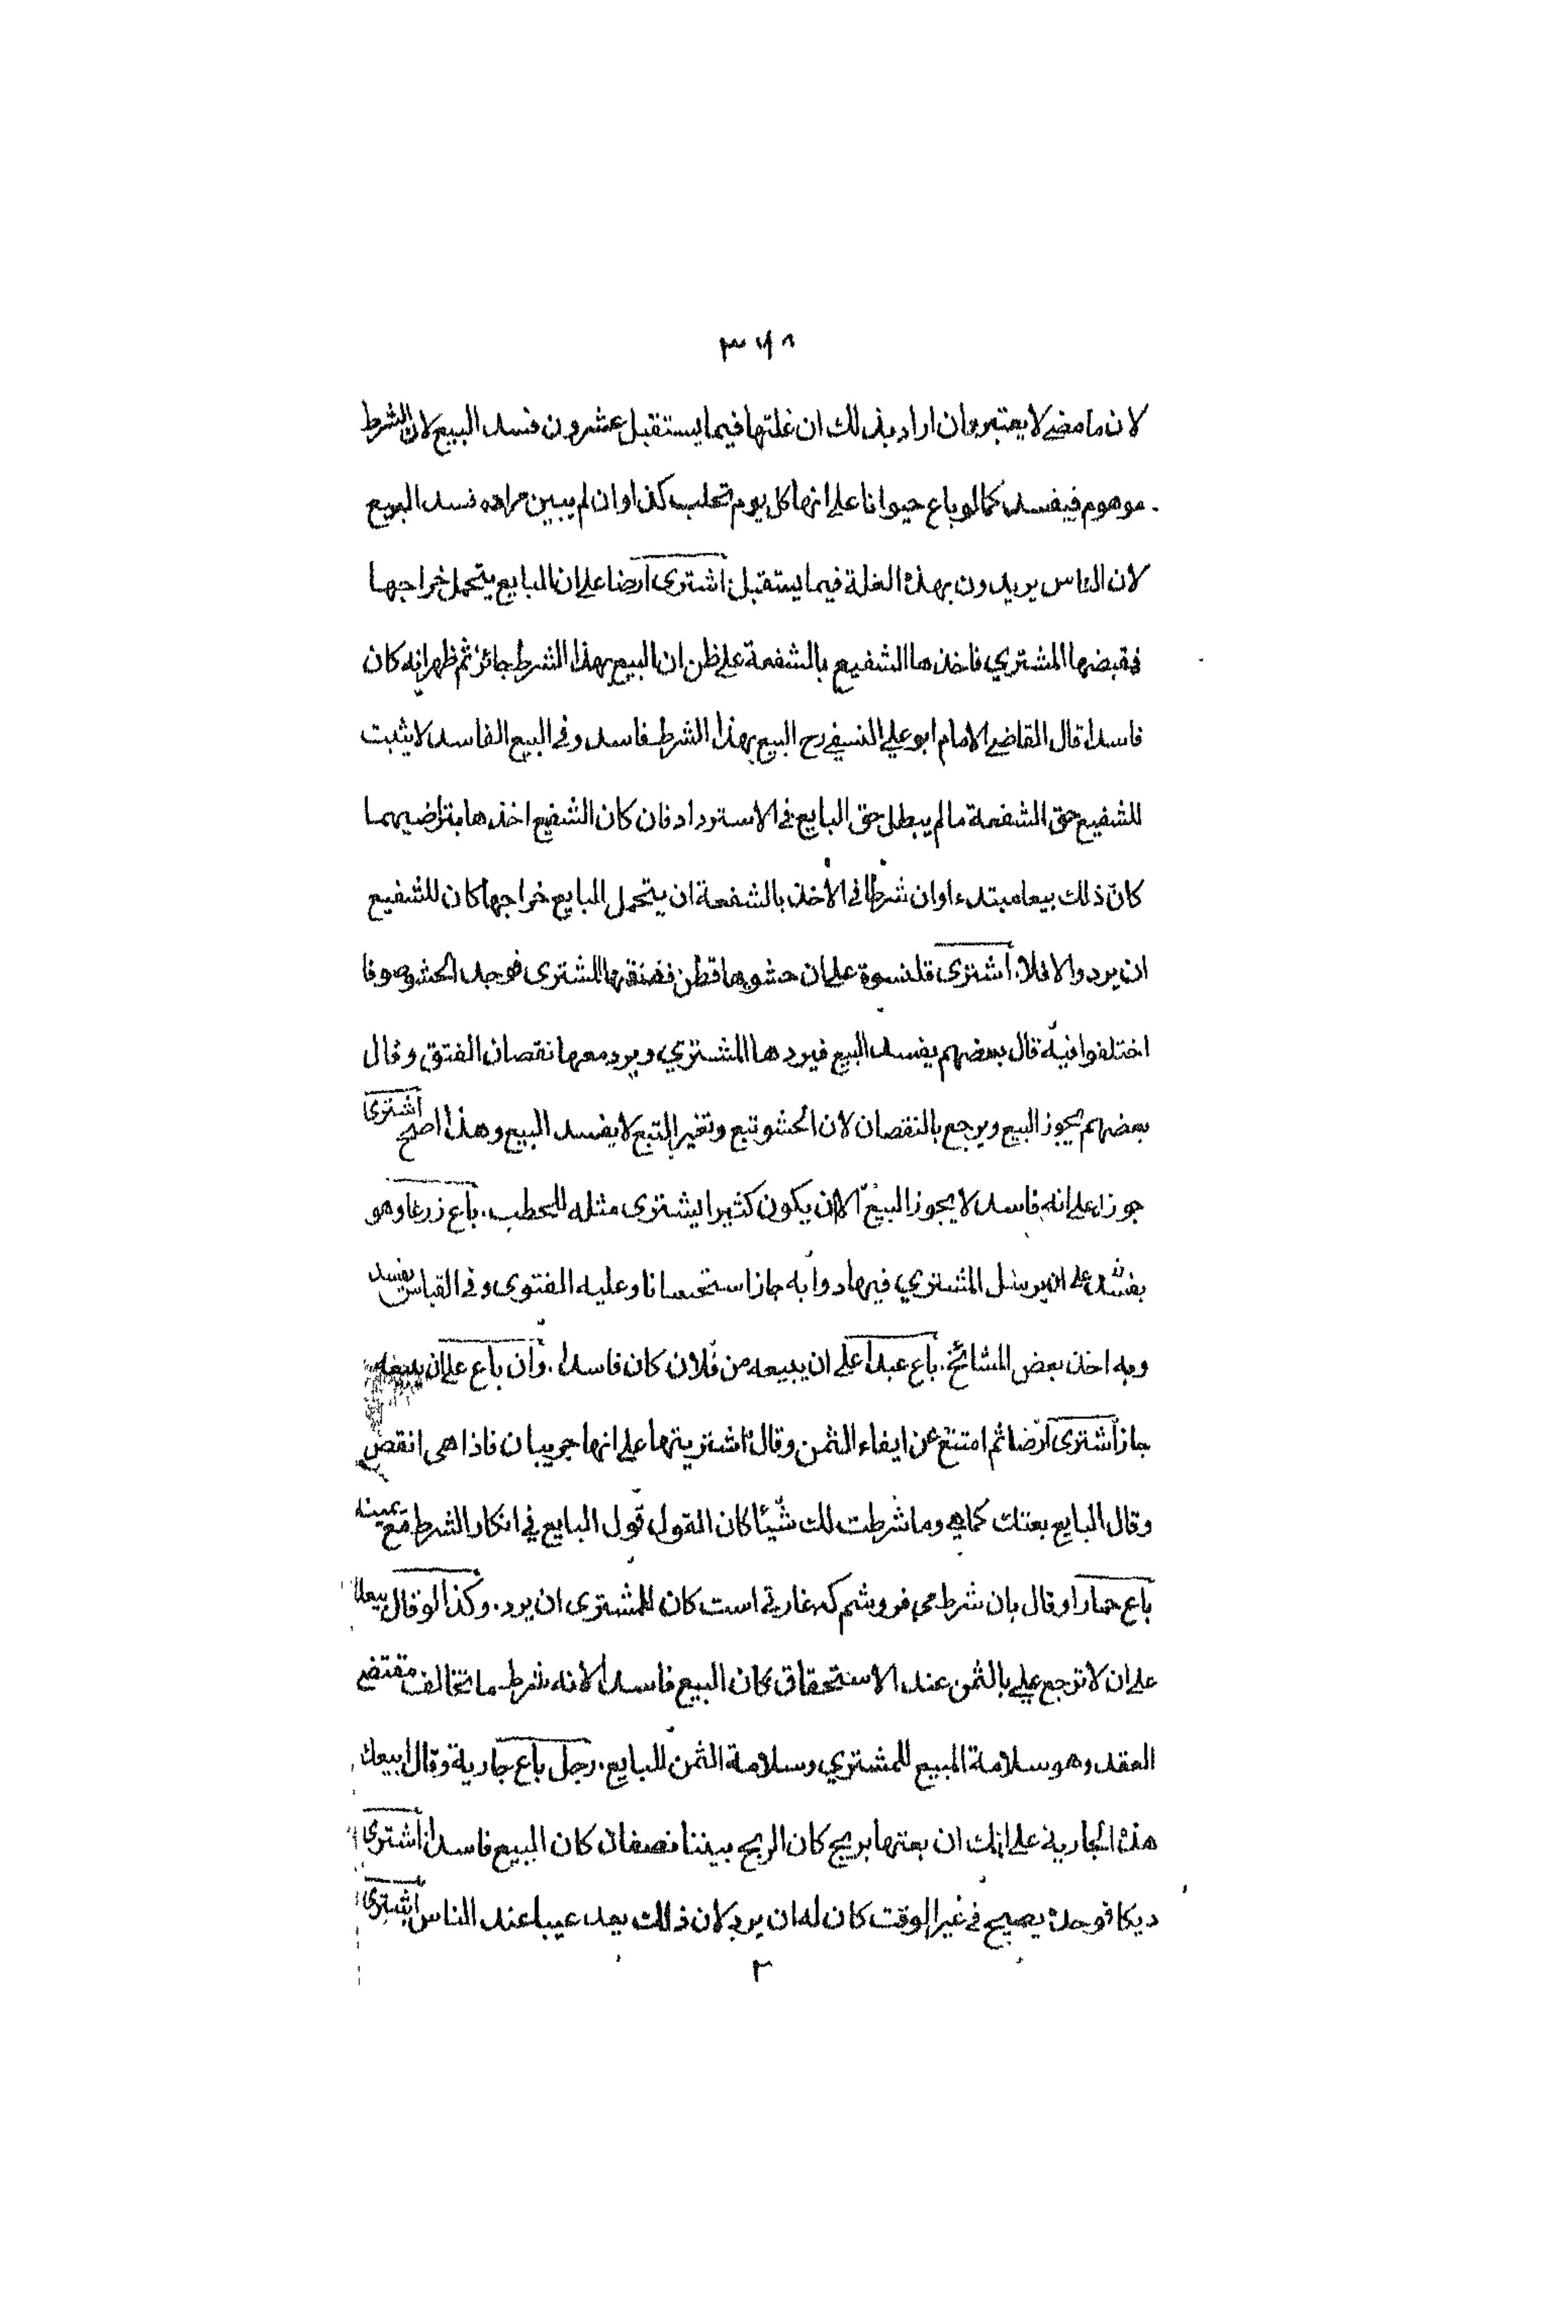 لان ما مضى لا يعتبر وان اراد بذلك ان غلتها فيما يستقبل عشرون فسد البيع لان الشرط
موهوم فيفسد كما لو باع حيوانا على انها كل يوم تحلب كذا وان لم يبين مراده فسد البيع
لان الناس يريدون بهذه الغلة فيما يستقبل. اشترى ارضا على ان البايع يتحمل خراجها
فقبضها المشتري فاخذها الشفيع بالشفعة على ظن ان البيع بهذا الشرط جائز ثم ظهر انه كان
فاسدا قال القاضي الامام ابو علي النسفي رح البيع بهذا الشرط فاسد وفي البيع الفاسد لا يثبت
للشفيع حق الشفعة ما لم يبطل حق البايع في الاسترداد فان كان الشفيع اخذها بتراضيهما
كان ذلك بيعا مبتدء اوان شرطا في الاخذ بالشفعة ان يتحمل البايع خراجها كان للشفيع
ان يرد والا فلا. اشترى قلنسوة على ان حشوها قطن ففتقها المشترى فوجد الحشو صوفا
اختلفوا فيه قال بعضهم يفسد البيع فيردها المشتري ويرد معها نقصان الفتق وقال
بعضهم يجوز البيع ويرجع بالنقصان لان الحشو تبع وتغير التبع لا يفسد البيع وهذا اصح اشترى
جوزا على انه فاسد لا يجوز البيع الا ان يكون كثيرا يشترى مثله للحطب. باع زرعا وهو
على ان يرسل المشتري فيها دوابه جاز استحسانا وعليه الفتوى وفي القياس يفسد
وبه اخذ بعض المشائخ. باع عبدا على ان يبيعه من فلان كان فاسدا. وان باع على ان يبيعه
جاز اشترى ارضا ثم امتنع عن ايفاء الثمن وقال اشتريتها على انها جريبان فاذا هي انقص
وقال البايع بعتك كما هي وما شرطت لك شيئا كان القول قول البايع في انكار الشرط مع يمينه
باع حمارا وقال بان شرط مي فروشم كه غارتي است كان للمشترى ان يرد. وكذا لو قال بيعا
على ان لا ترجع علي بالثمن عند الاستحقاق كان البيع فاسدا لانه شرط ما تخالف مقتضى
العقد وهو سلامة المبيع للمشتري وسلامة الثمن للبايع. رجل باع جارية وقال ابيعك
هذه الجارية على انك ان بعتها بربح كان الربح بيننا نصفان كان البيع فاسدا اشترى
ديكا فوجده يصيح في غير الوقت كان له ان يرد لان ذلك يعد عيبا عند الناس اشترى